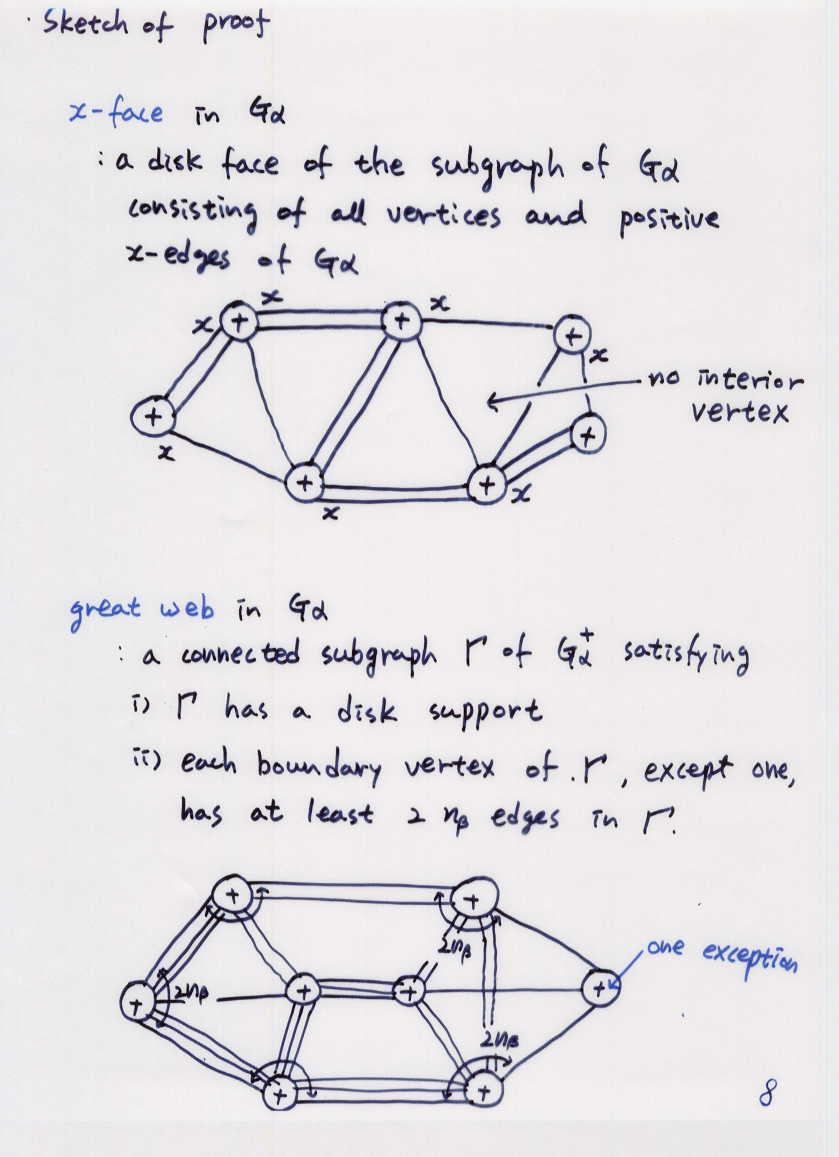 · Sketch of proof
x-face in Gα
: a disk face of the subgraph of Gα
consisting of all vertices and positive
x-edges of Gα
x x x
+ + + x
no interior
vertex
+ x + + x +
x
great web in Gα
: a connected subgraph Γ of Gα⁺ satisfying
i) Γ has a disk support
ii) each boundary vertex of Γ, except one,
has at least 2nβ edges in Γ.
+ +
2nβ one exception
+ 2nβ + + +
2nβ
+ +
8